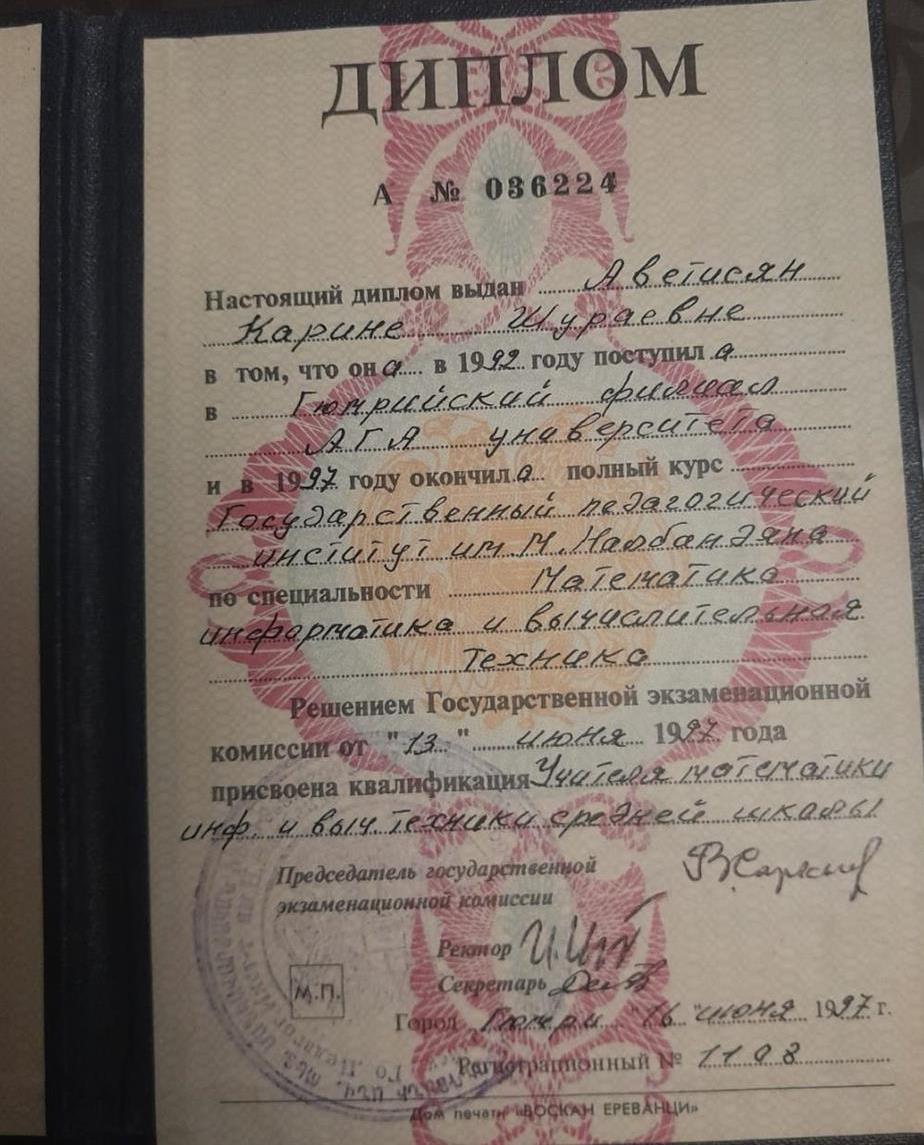 ДИПЛОМ
А № 036224
Настоящий диплом выдан Аветисян
Карине Шураевне
в том, что она в 1992 году поступила
в Гюмрийский филиал
АГА университета
и в 1997 году окончила полный курс
Государственный педагогический
институт им. М. Налбандяна
по специальности Математика
информатика и вычислительная
техника
Решением Государственной экзаменационной
комиссии от "13" июня 1997 года
присвоена квалификация Учителя математики
инф. и выч. техники средней школы
Председатель государственной
экзаменационной комиссии
Ректор
Секретарь
М.П.
Город Гюмри "16" июня 1997 г.
Регистрационный № 1108
Дом печати «ВОСКАН ЕРЕВАНЦИ»